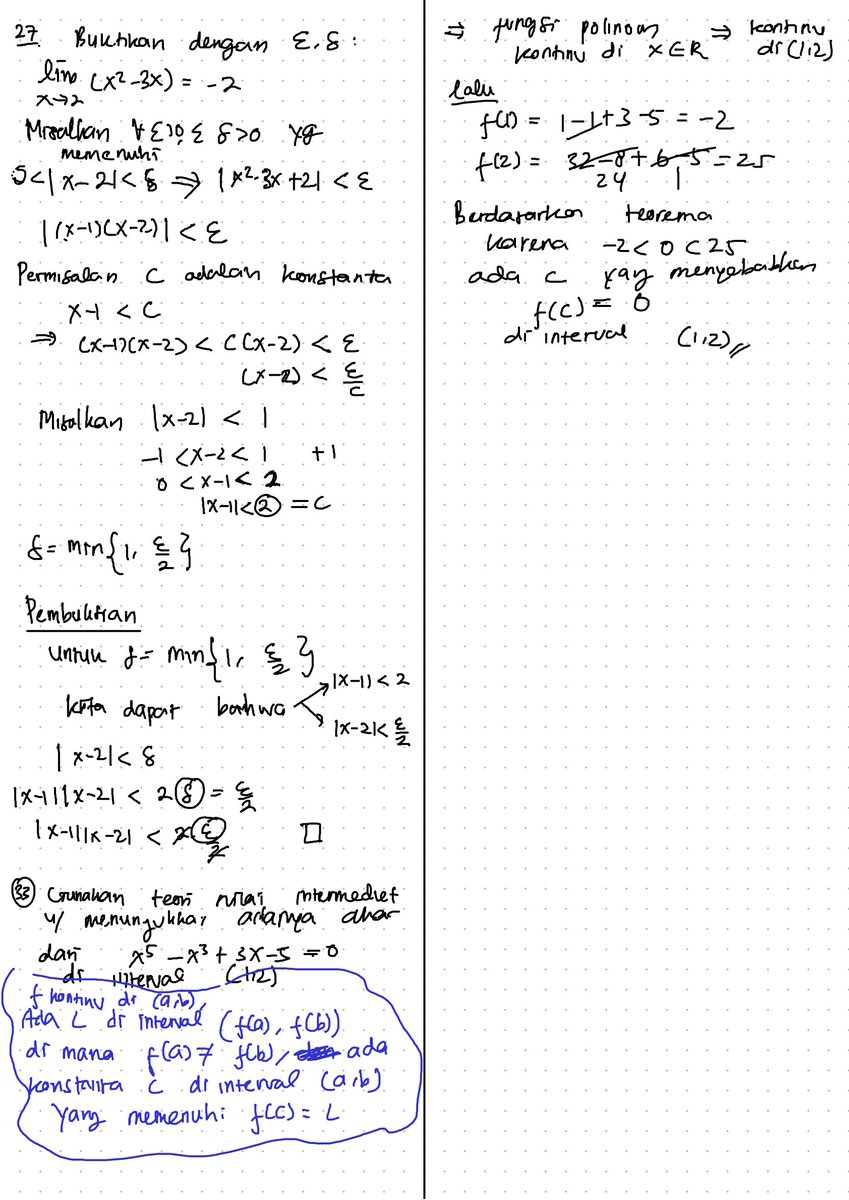 27 Buktikan dengan ε, δ :
lim (x² - 3x) = -2
x→2
Misalkan ∀ε>0, ∃ δ>0 yg
memenuhi
0<|x-2|<δ ⇒ |x²-3x+2| < ε
|(x-1)(x-2)| < ε
Permisalan C adalah konstanta
x-1 < C
⇒ (x-1)(x-2) < C(x-2) < ε
(x-2) < ε/C
Misalkan |x-2| < 1
-1 < x-2 < 1 +1
0 < x-1 < 2
|x-1| < 2 = C
δ = min{1, ε/2}
Pembuktian
Untuk δ = min{1, ε/2}
kita dapat bahwa
|x-1| < 2
|x-2| < ε/2
|x-2| < δ
|x-1||x-2| < 2 δ = ε/2
|x-1||x-2| < 2 ε/2 □
33 Gunakan teori nilai intermediet
u/ menunjukkan adanya akar
dari x⁵ - x³ + 3x - 5 = 0
di interval (1,2)
f kontinu di (a,b),
Ada L di interval (f(a), f(b))
di mana f(a) ≠ f(b), ada
konstanta C di interval (a,b)
yang memenuhi f(C) = L
⇒ fungsi polinom ⇒ kontinu
kontinu di x∈R di (1,2)
Lalu
f(1) = 1-1+3-5 = -2
f(2) = 32-8+6-5 = 25
24 1
Berdasarkan teorema
karena -2 < 0 < 25
ada c yang menyebabkan
f(C) = 0
di interval (1,2)